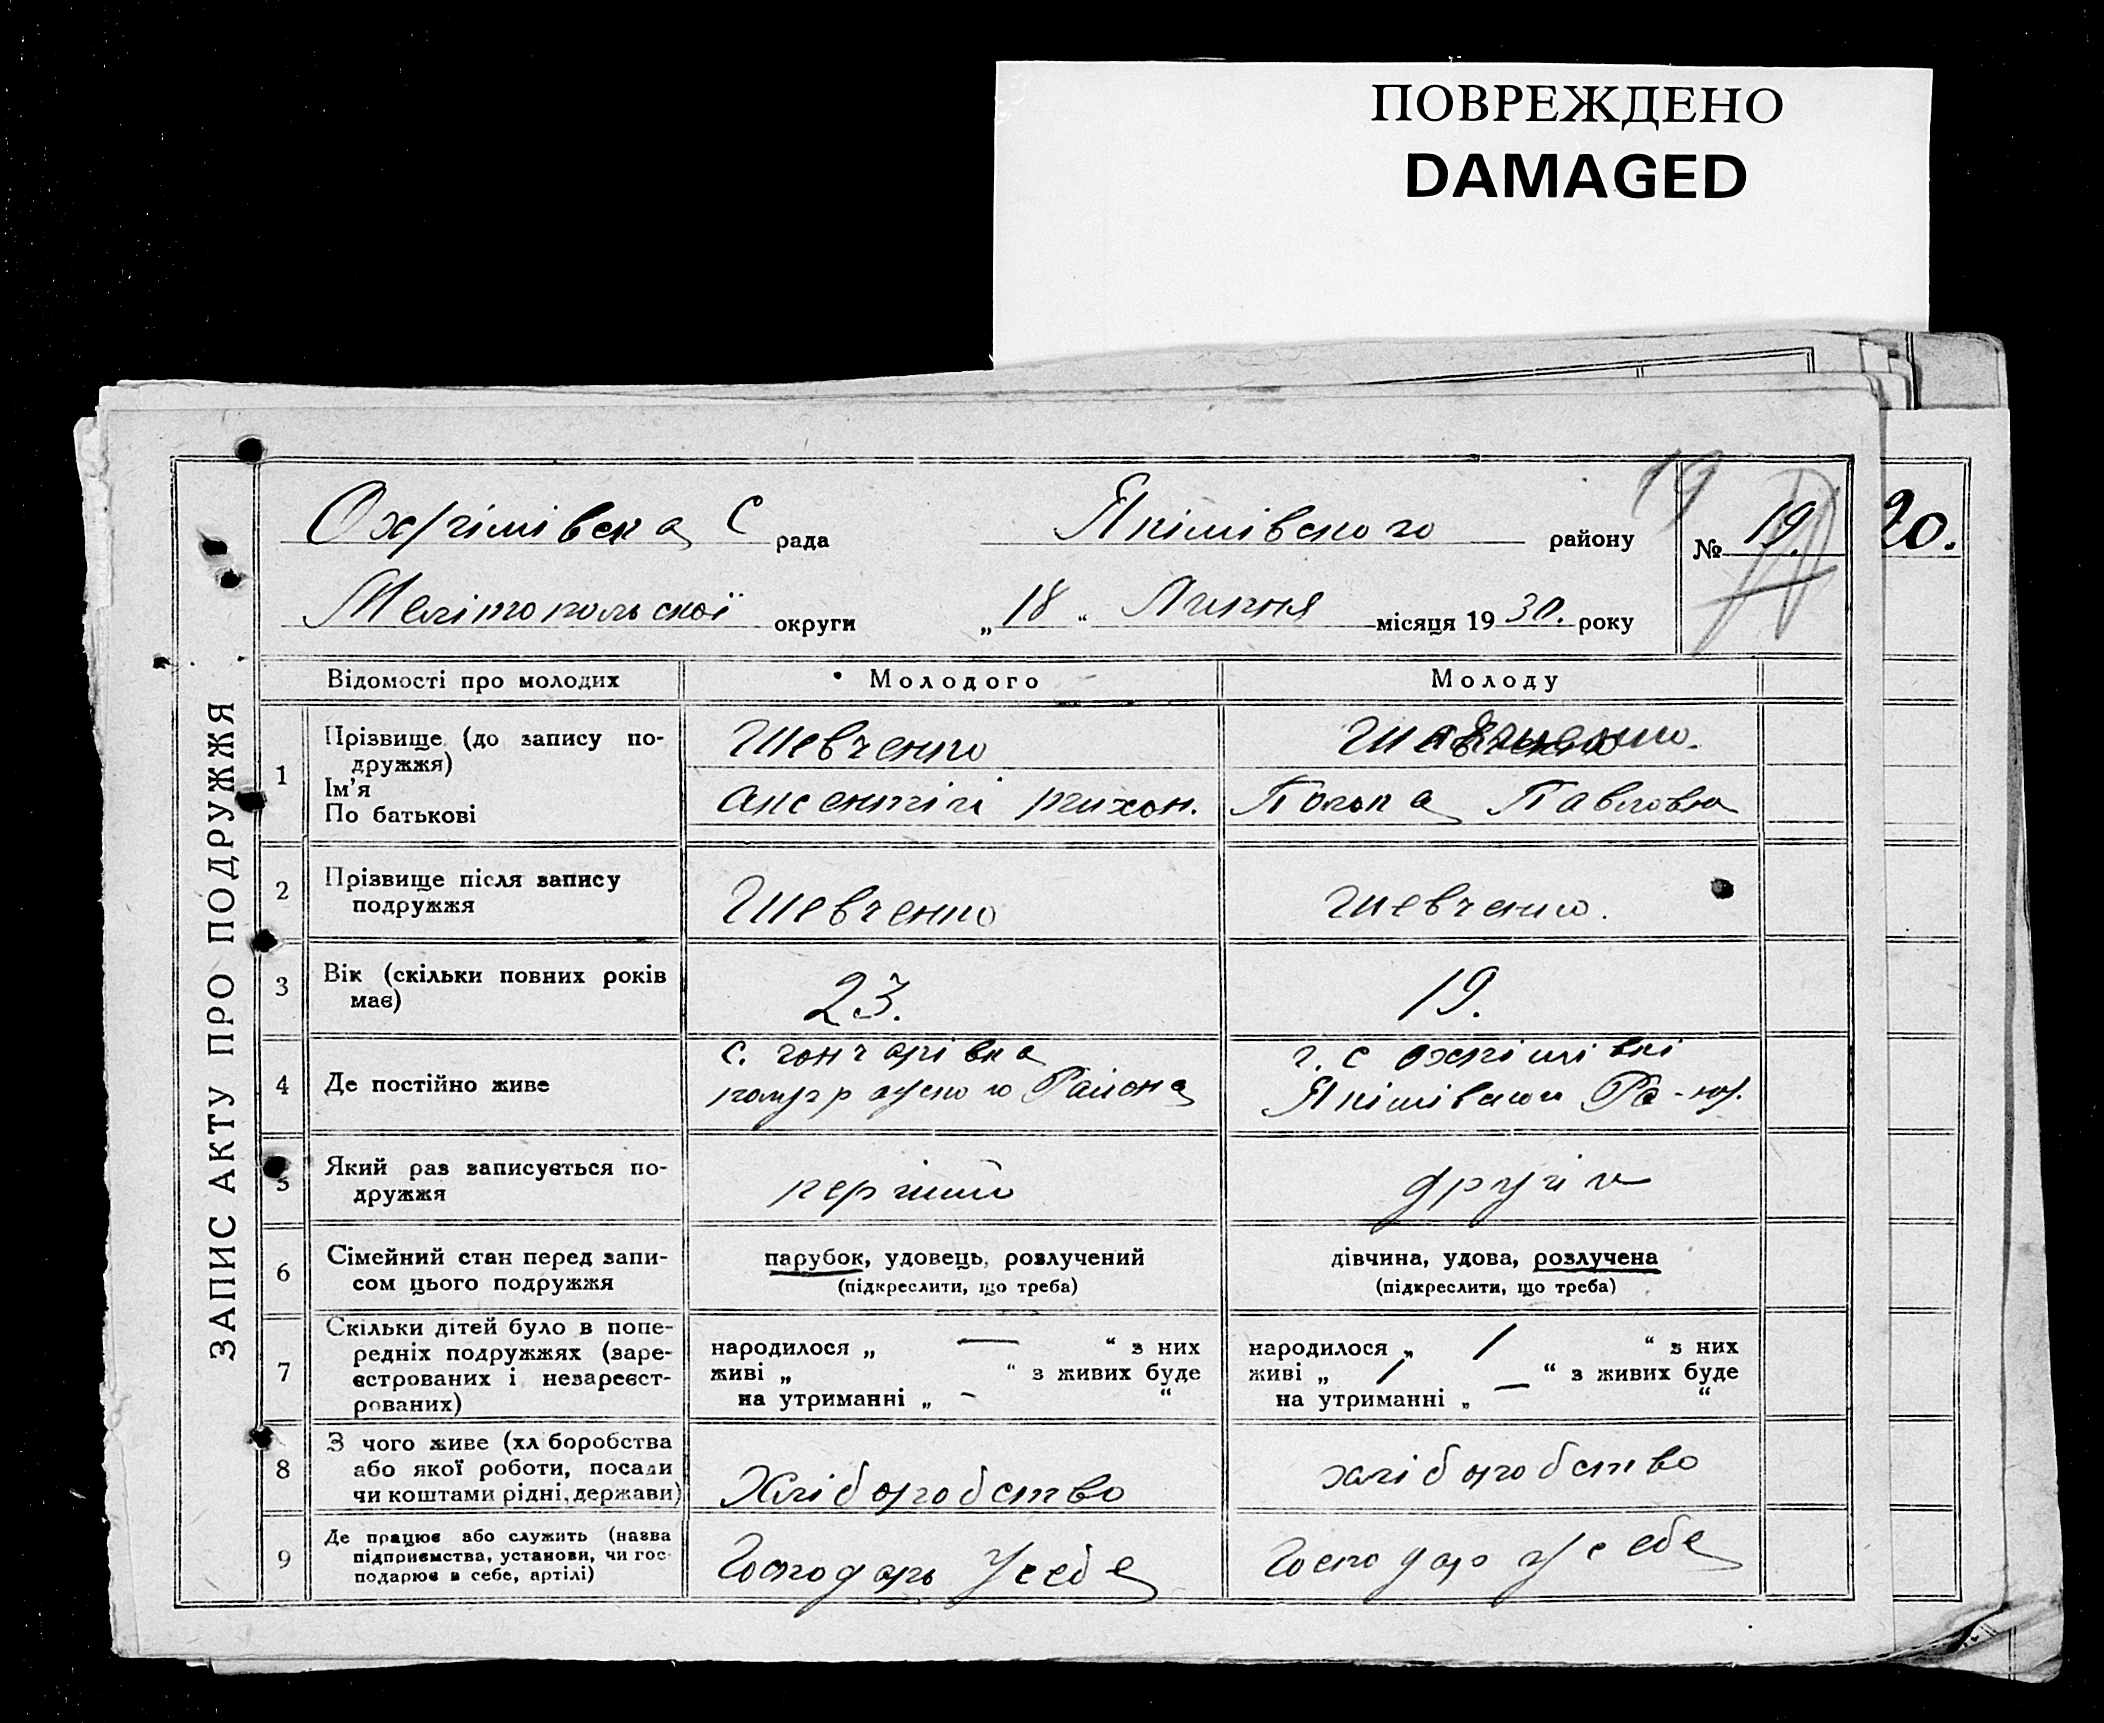 ПОВРЕЖДЕНО
DAMAGED
ЗАПИС АКТУ ПРО ПОДРУЖЖЯ
Охрімівска С рада Якімівського району № 19.
19
20.
Мелітопольскої округи „18“ Липня місяця 1930. року
Відомості про молодих Молодого Молоду
1 Прізвище (до запису по-
дружжя)
Ім’я
По батькові
Шевченко
Аксентій тихон. Павловна
2 Прізвище після запису
подружжя
Шевченко Шевченко.
3 Вік (скільки повних років
має)
23. 19.
4 Де постійно живе
с. гончарівка
Района
с охрімівкі
Якімівского Ра-ну.
5 Який раз записується по-
дружжя
перший другій
6 Сімейний стан перед запи-
сом цього подружжя
парубок, удовець, розлучений
(підкреслити, що треба)
дівчина, удова, розлучена
(підкреслити, що треба)
7 Скільки дітей було в попе-
редніх подружжях (заре-
єстрованих і незареєст-
рованих)
народилося „ — “ з них
живі „ “ з живих буде
на утриманні „ - “
народилося „ 1 “ з них
живі „ 1 “ з живих буде
на утриманні „ — “
8 З чого живе (хл боробства
або якої роботи, посади
чи коштами рідні, держави)
Хліборобство хліборобство
9 Де працює або служить (назва
підприємства, установи, чи гос-
подарює в себе, артілі)
Господарь у себе Господар у себе